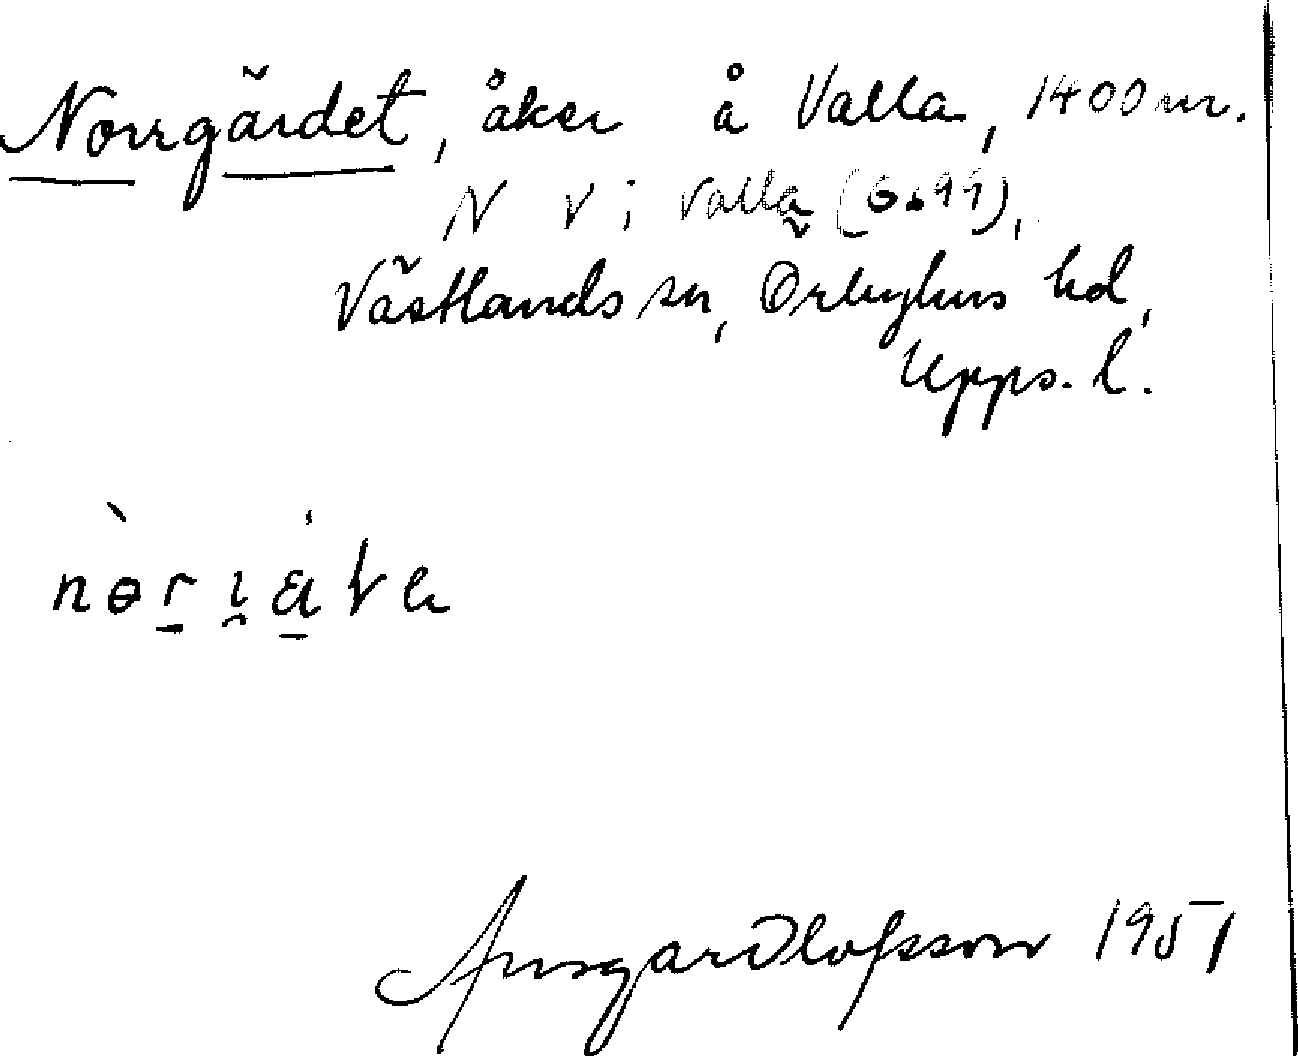 Norrgärdet, åker å Valla, 1400 m.
N V i Valla
Västlands sn, Örbyhus hd,
Upps. l.
Ansgar Olofsson 1951